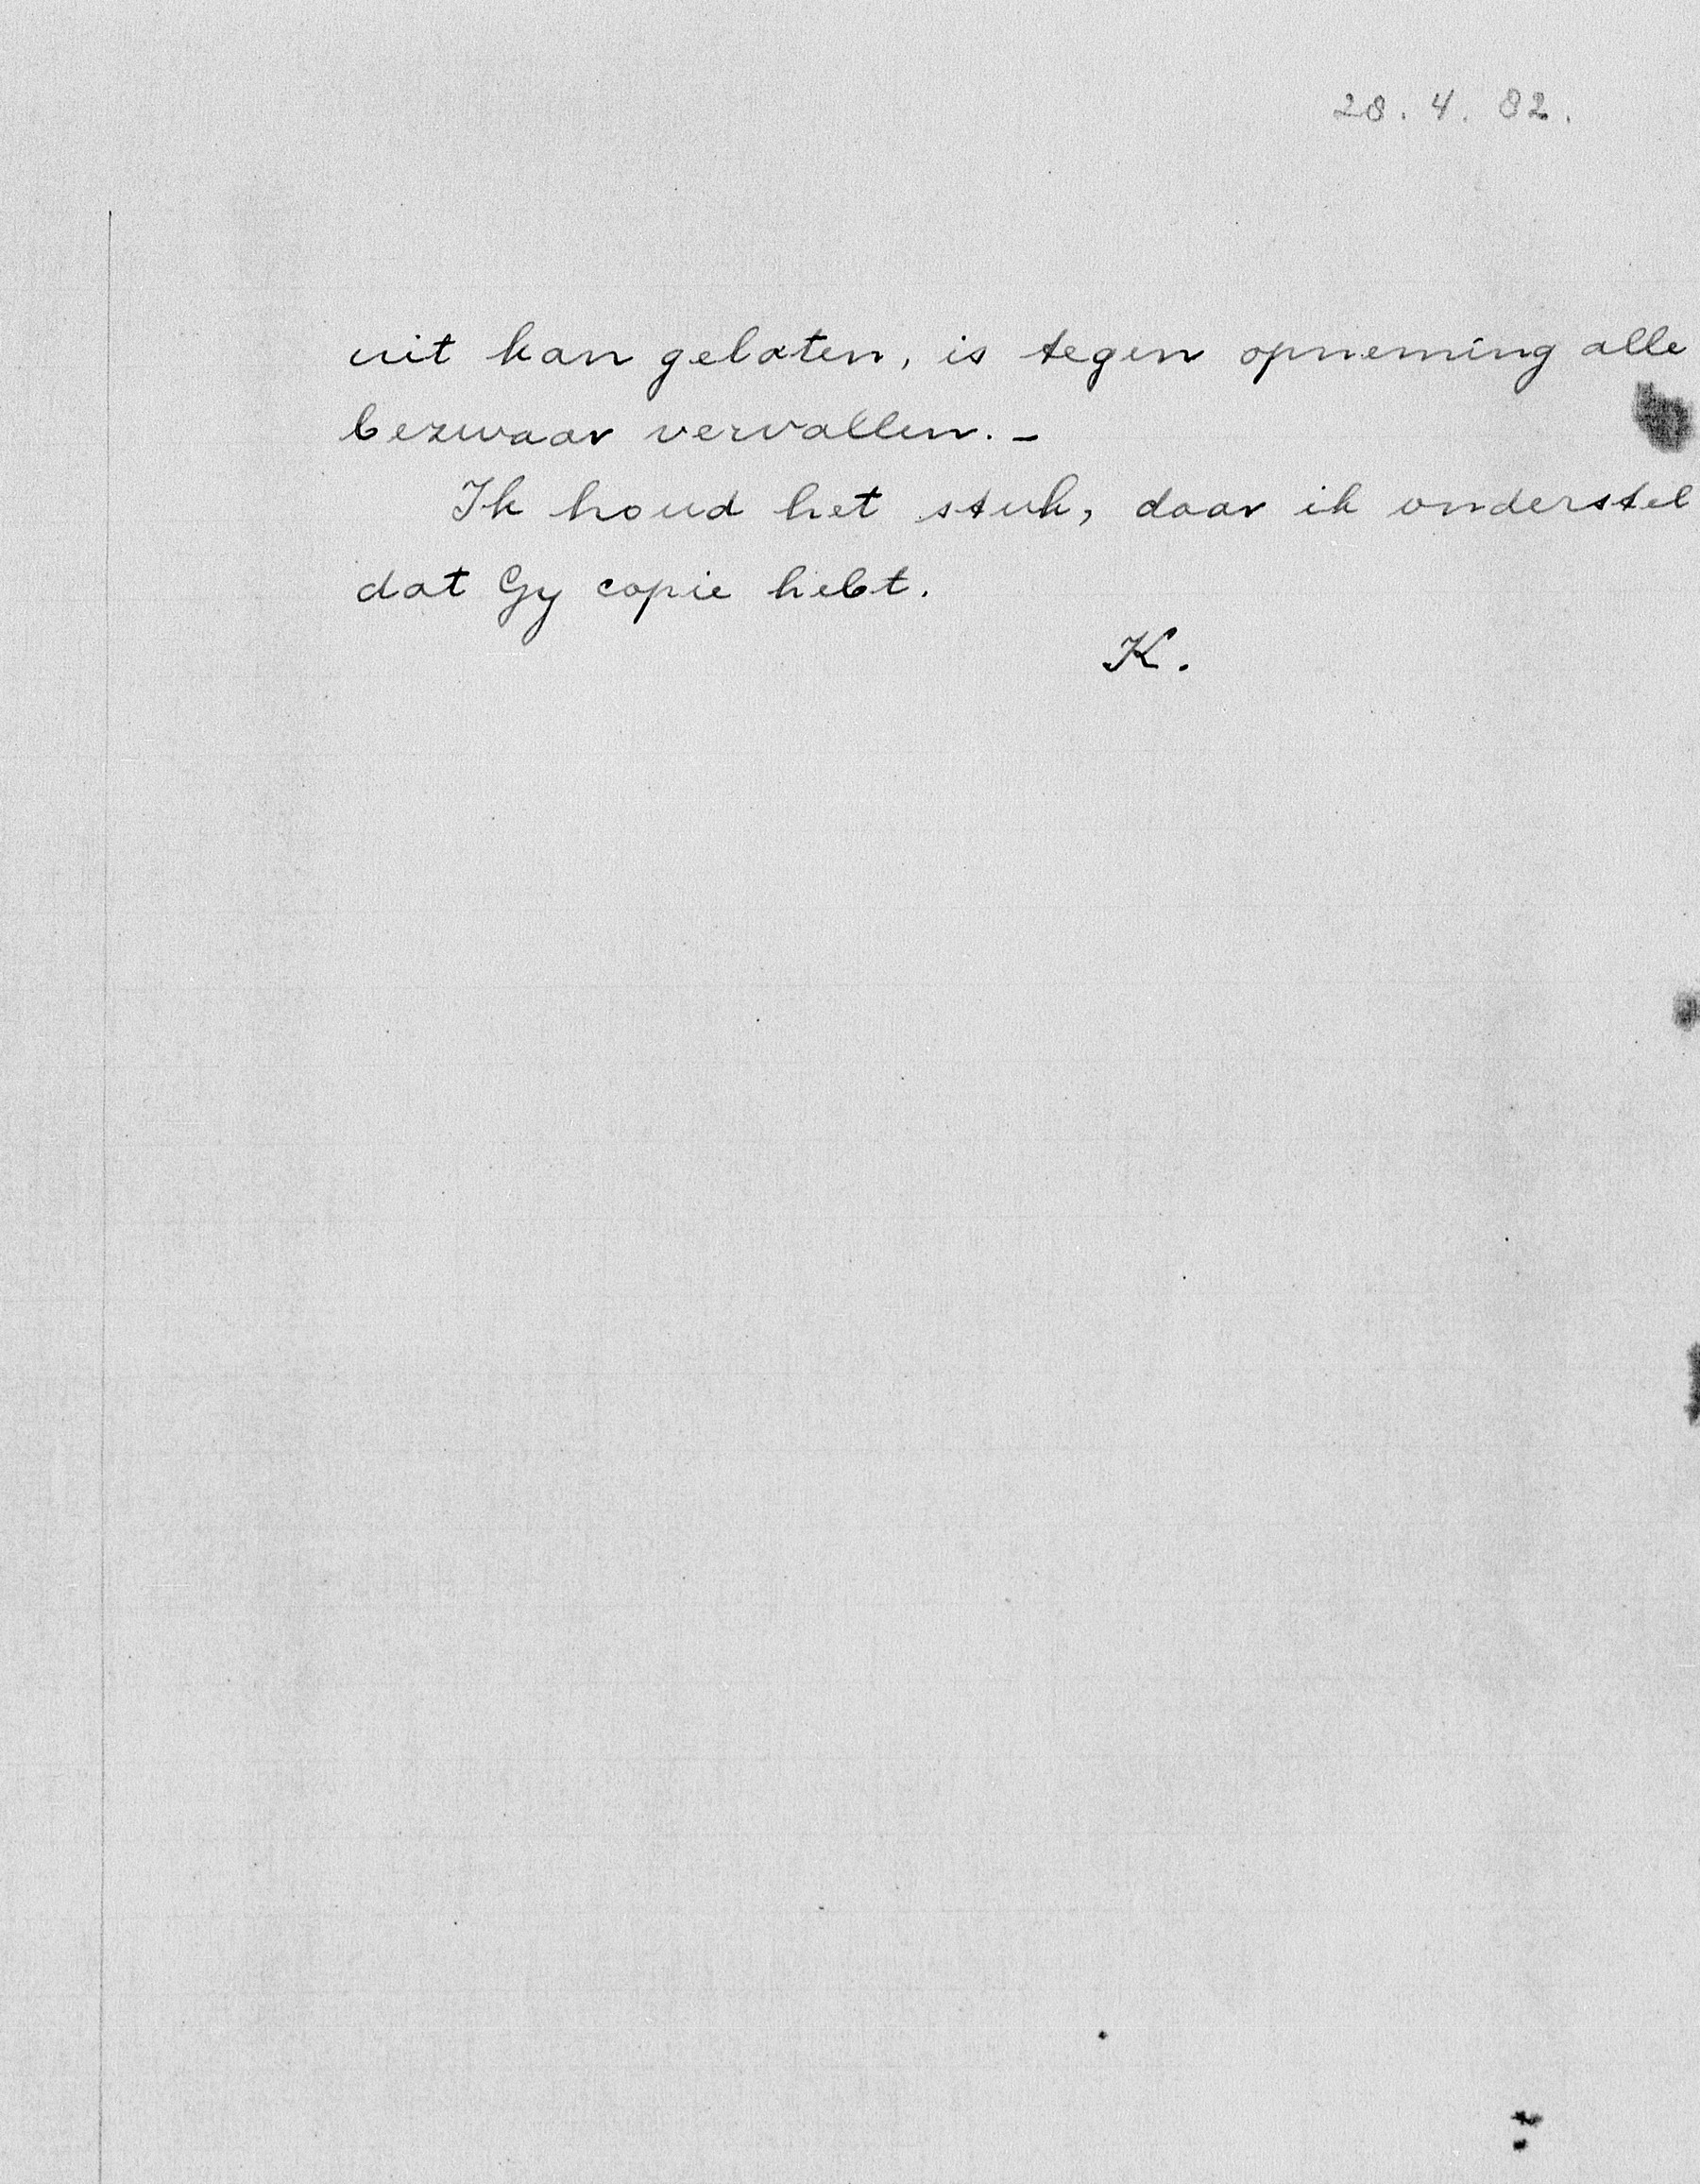 28. 4. 82.
uit kan gelaten, is tegen opneming alle
bezwaar vervallen. -
Ik houd het stuk, daar ik onderstel
dat Gy copie hebt.
K.